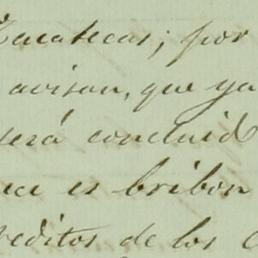 Zacatecas; por
avisan, que ya
será concluid
es bribon
creditos de los